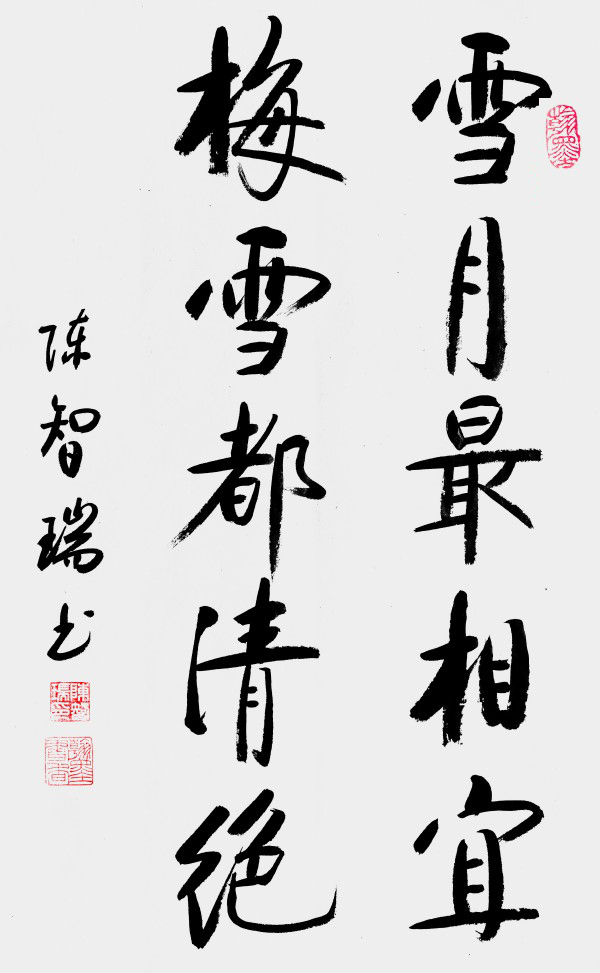 雪月最相宜
梅雪都清绝
陈智瑞书